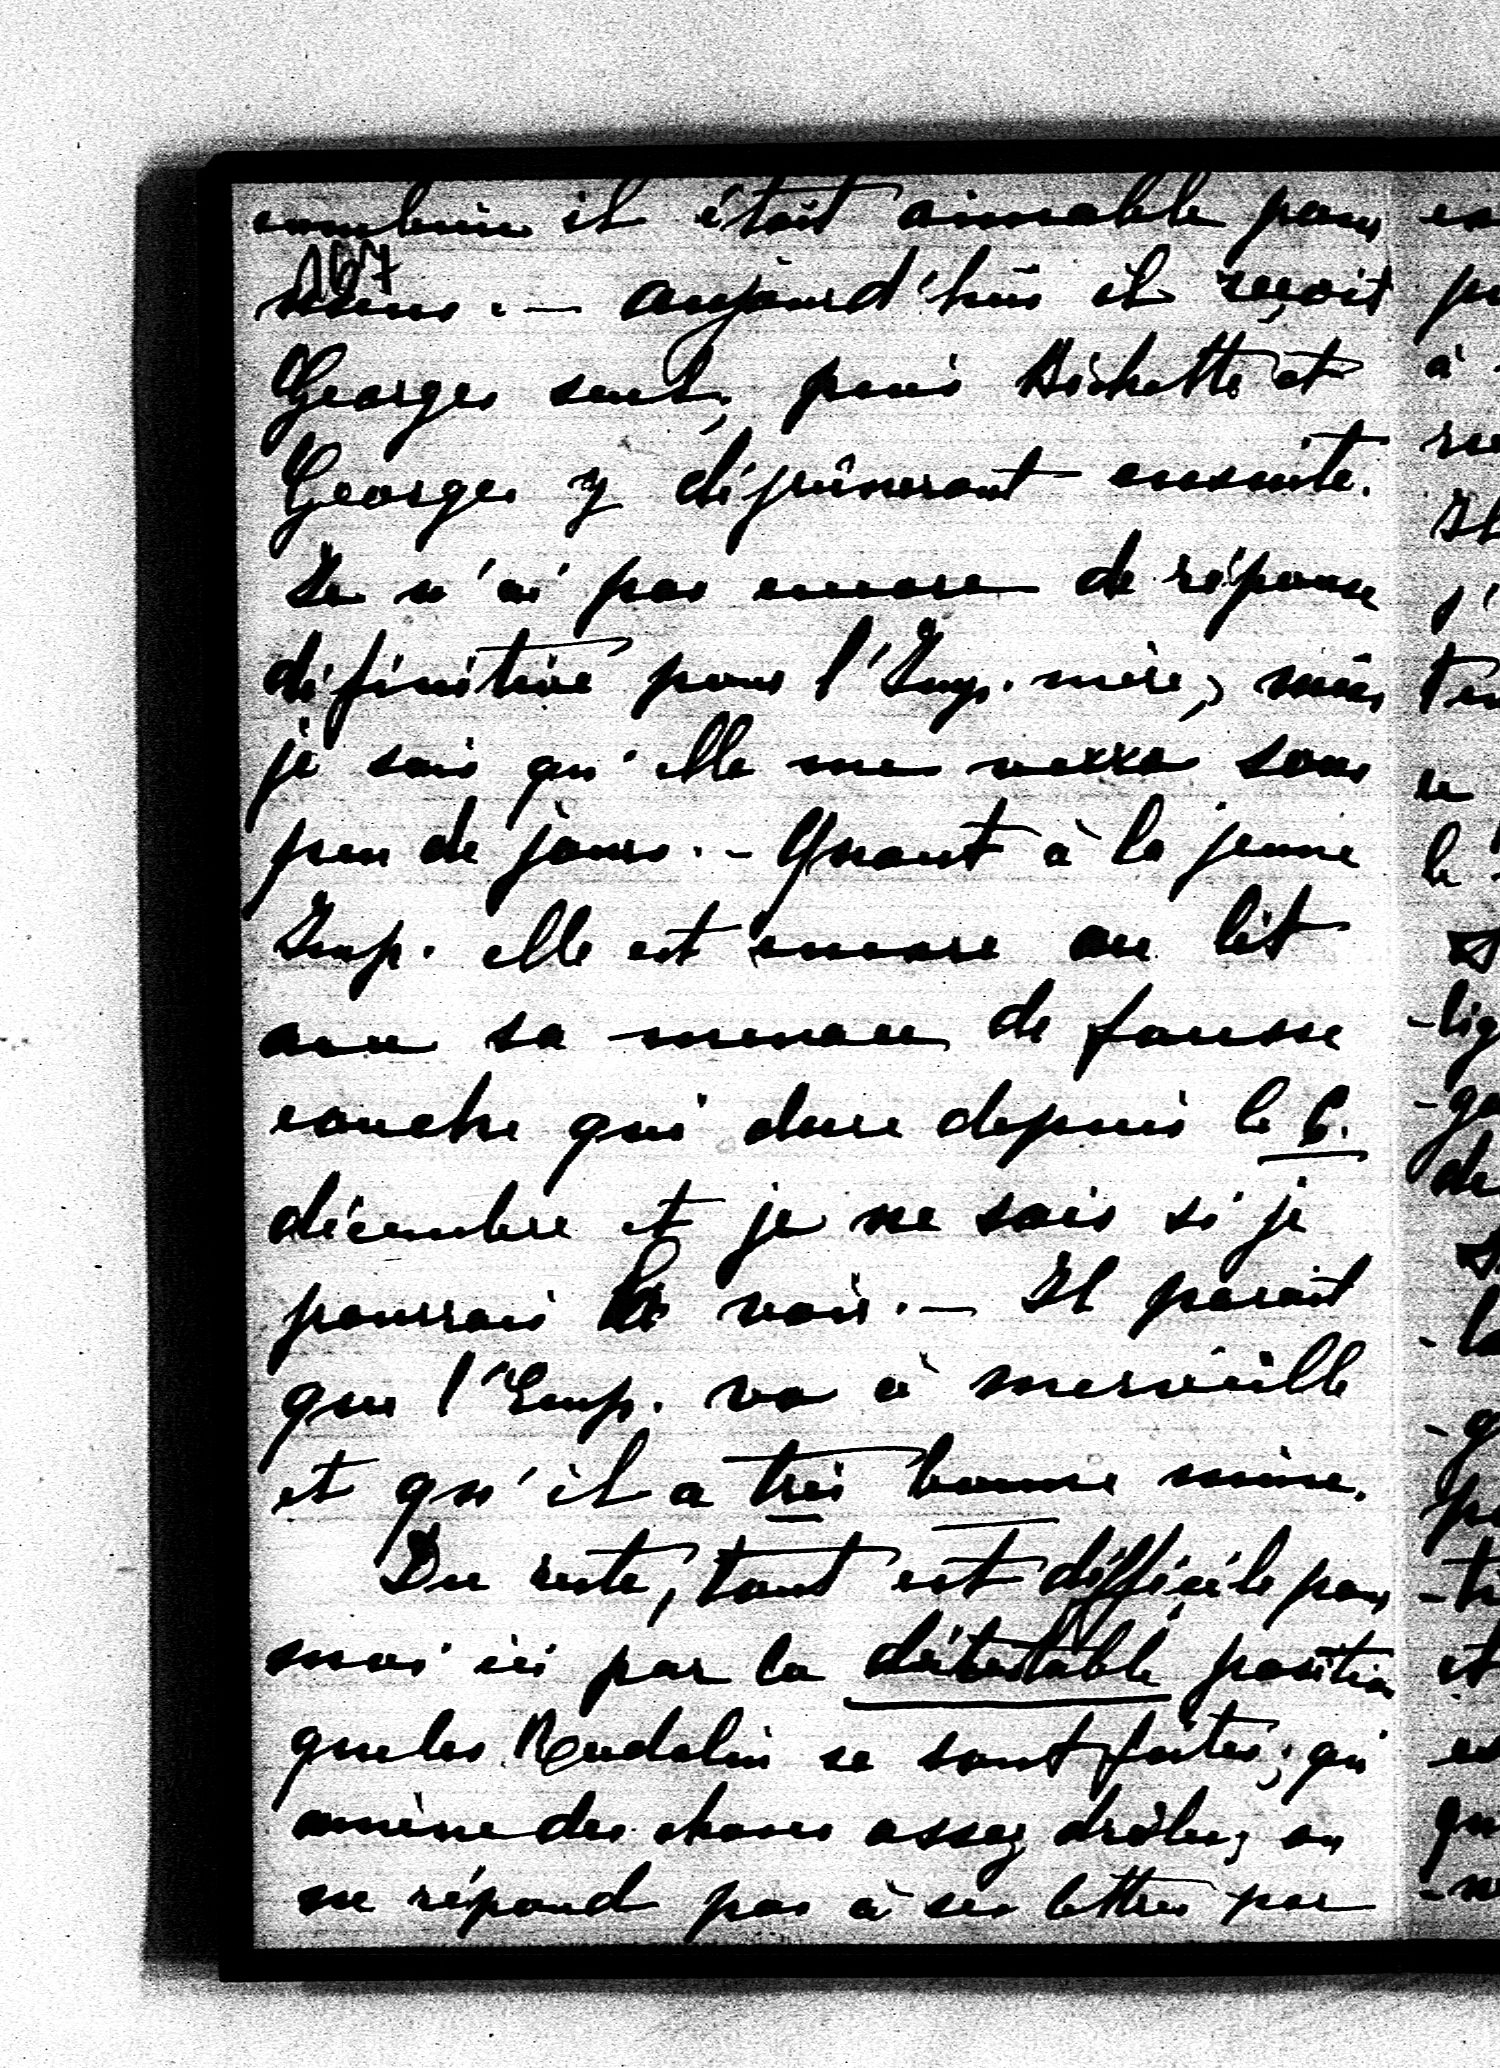 combien il était aimable pour
167
nous. — Aujourd'hui il reçoit
Georges seul, puis Bichette et
Georges y déjeûneront ensuite.
Je n'ai pas encore de réponse
définitive pour l'Imp. mère, mais
je sais qu'elle me verra sous
peu de jours. — Quant à la jeune
Imp. elle est encore au lit
avec sa menace de fausse
couche qui dure depuis le 6.
décembre et je ne sais si je
pourrais la voir. — Il parait
que l'Emp. va à merveille
et qu'il a très bonne mine.
Du reste, tout est difficile pour
moi ici par la détestable position
que les se sont faites; qui
amène des choses assez drôles, on
ne répond pas à ses lettres par